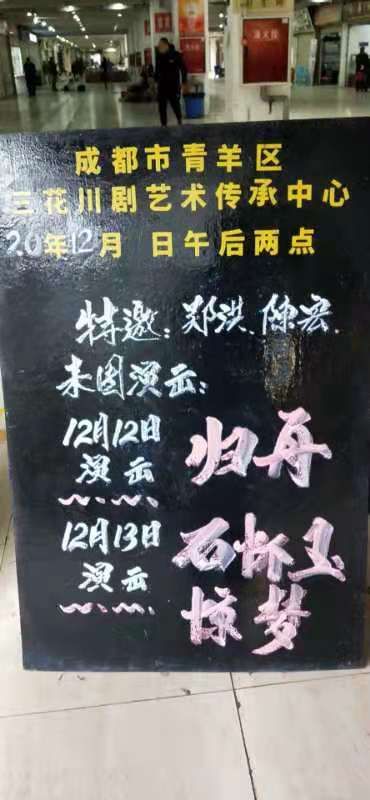 成都市青羊区
三花川剧艺术传承中心
20年12月 日午后两点
特邀:郑洪、陈宏.
来园演出:
12月12日
演出
归舟
12月13日
演出
石怀玉
惊梦